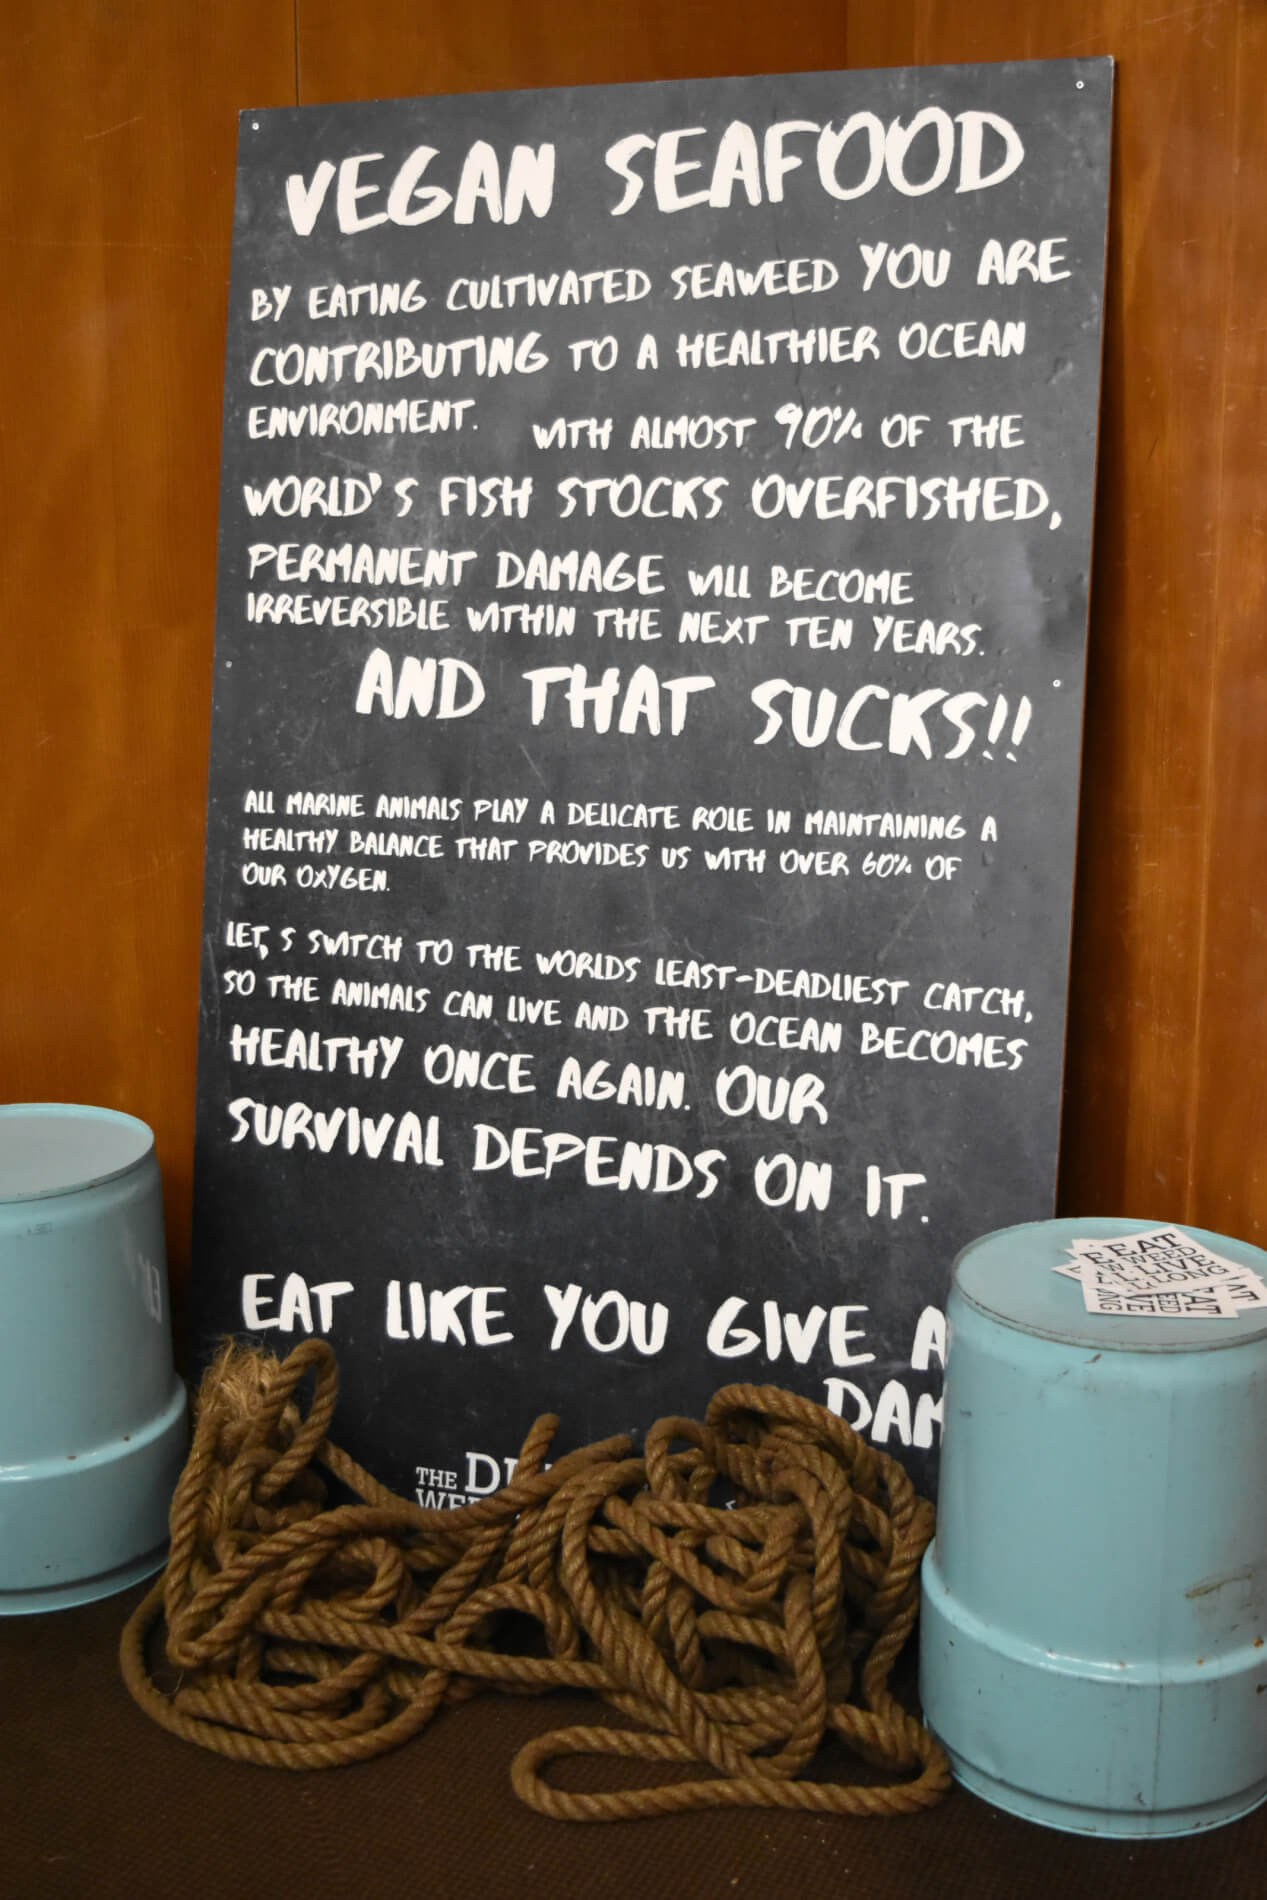 VEGAN SEAFOOD
BY EATING CULTIVATED SEAWEED YOU ARE
CONTRIBUTING TO A HEALTHIER OCEAN
ENVIRONMENT. WITH ALMOST 90% OF THE
WORLD'S FISH STOCKS OVERFISHED,
PERMANENT DAMAGE WILL BECOME
IRREVERSIBLE WITHIN THE NEXT TEN YEARS.
AND THAT SUCKS!!
ALL MARINE ANIMALS PLAY A DELICATE ROLE IN MAINTAINING A
HEALTHY BALANCE THAT PROVIDES US WITH OVER 60% OF
OUR OXYGEN.
LET, S SWITCH TO THE WORLDS LEAST-DEADLIEST CATCH,
SO THE ANIMALS CAN LIVE AND THE OCEAN BECOMES
HEALTHY ONCE AGAIN. OUR
SURVIVAL DEPENDS ON IT.
EAT LIKE YOU GIVE A
DAM
THE
EAT
WEED
LIVE
LONG